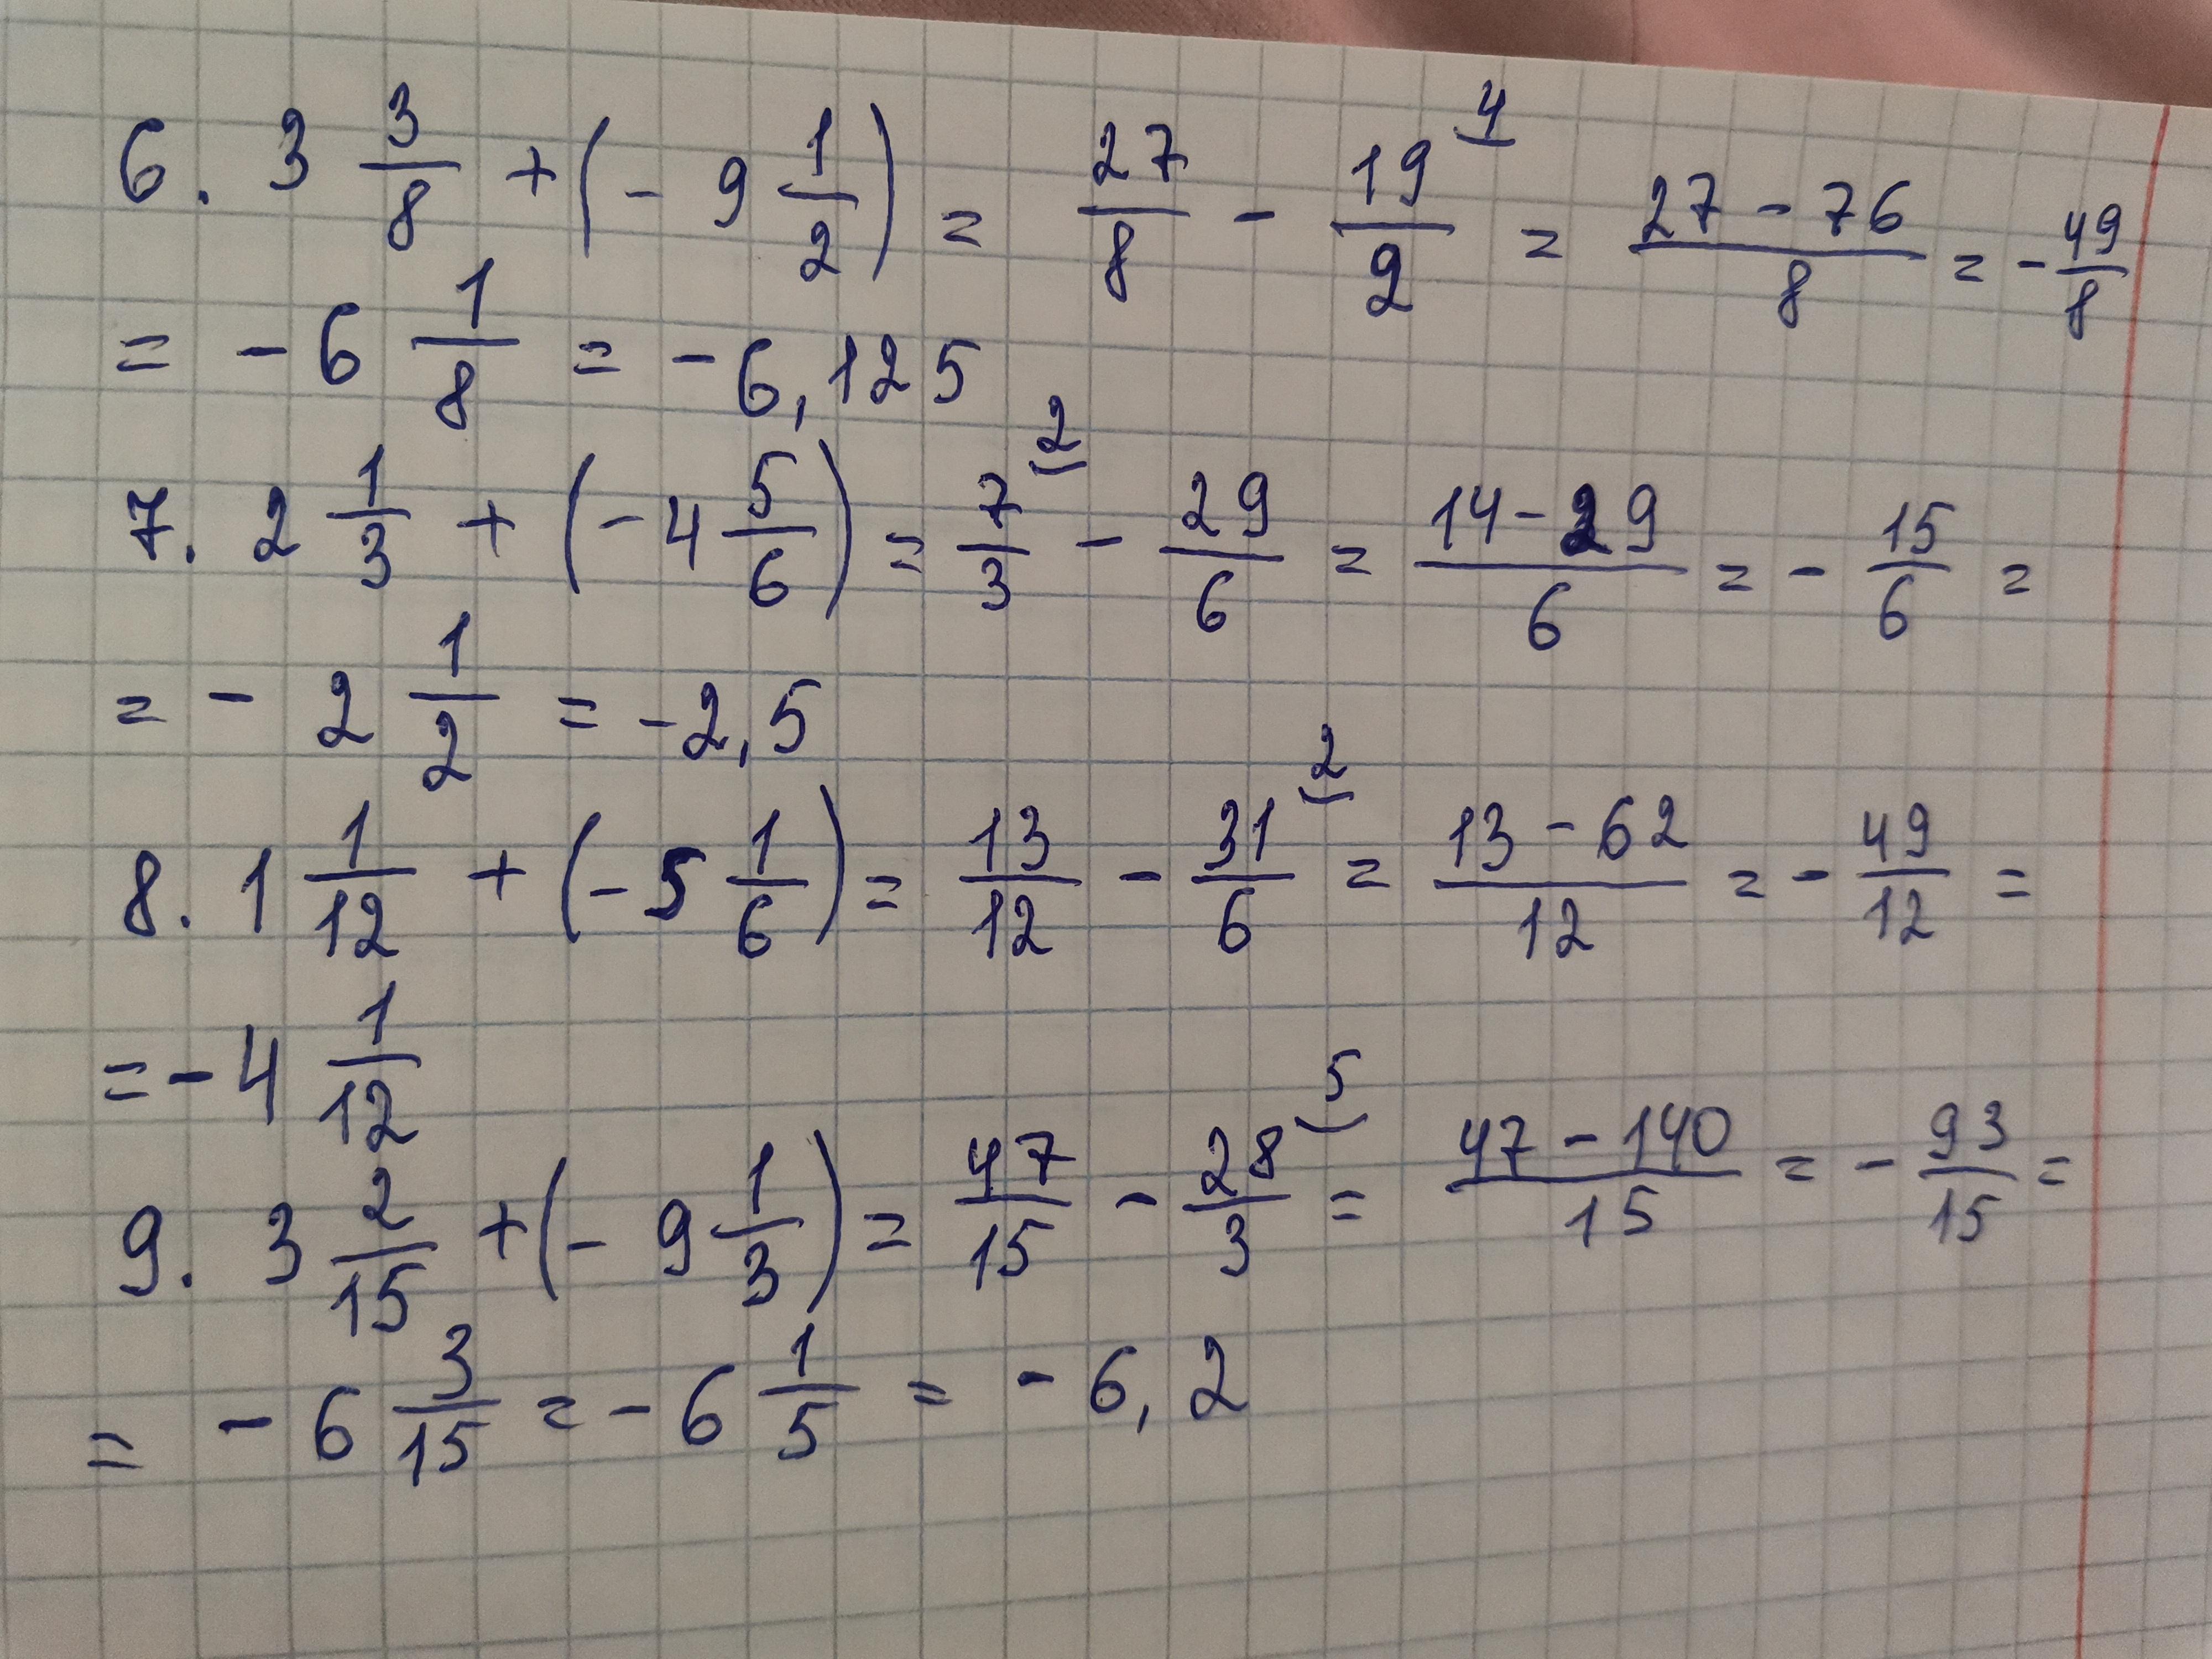 6. 3 3/8 + (- 9 1/2) = 27/8 - 19/2 ⁴ = (27 - 76)/8 = - 49/8
= - 6 1/8 = - 6,125
7. 2 1/3 + (- 4 5/6) = 7/3 ² - 29/6 = (14 - 29)/6 = - 15/6 =
= - 2 1/2 = - 2,5
8. 1 1/12 + (- 5 1/6) = 13/12 - 31/6 ² = (13 - 62)/12 = - 49/12 =
= - 4 1/12
9. 3 2/15 + (- 9 1/3) = 47/15 - 28/3 ⁵ = (47 - 140)/15 = - 93/15 =
= - 6 3/15 = - 6 1/5 = - 6,2